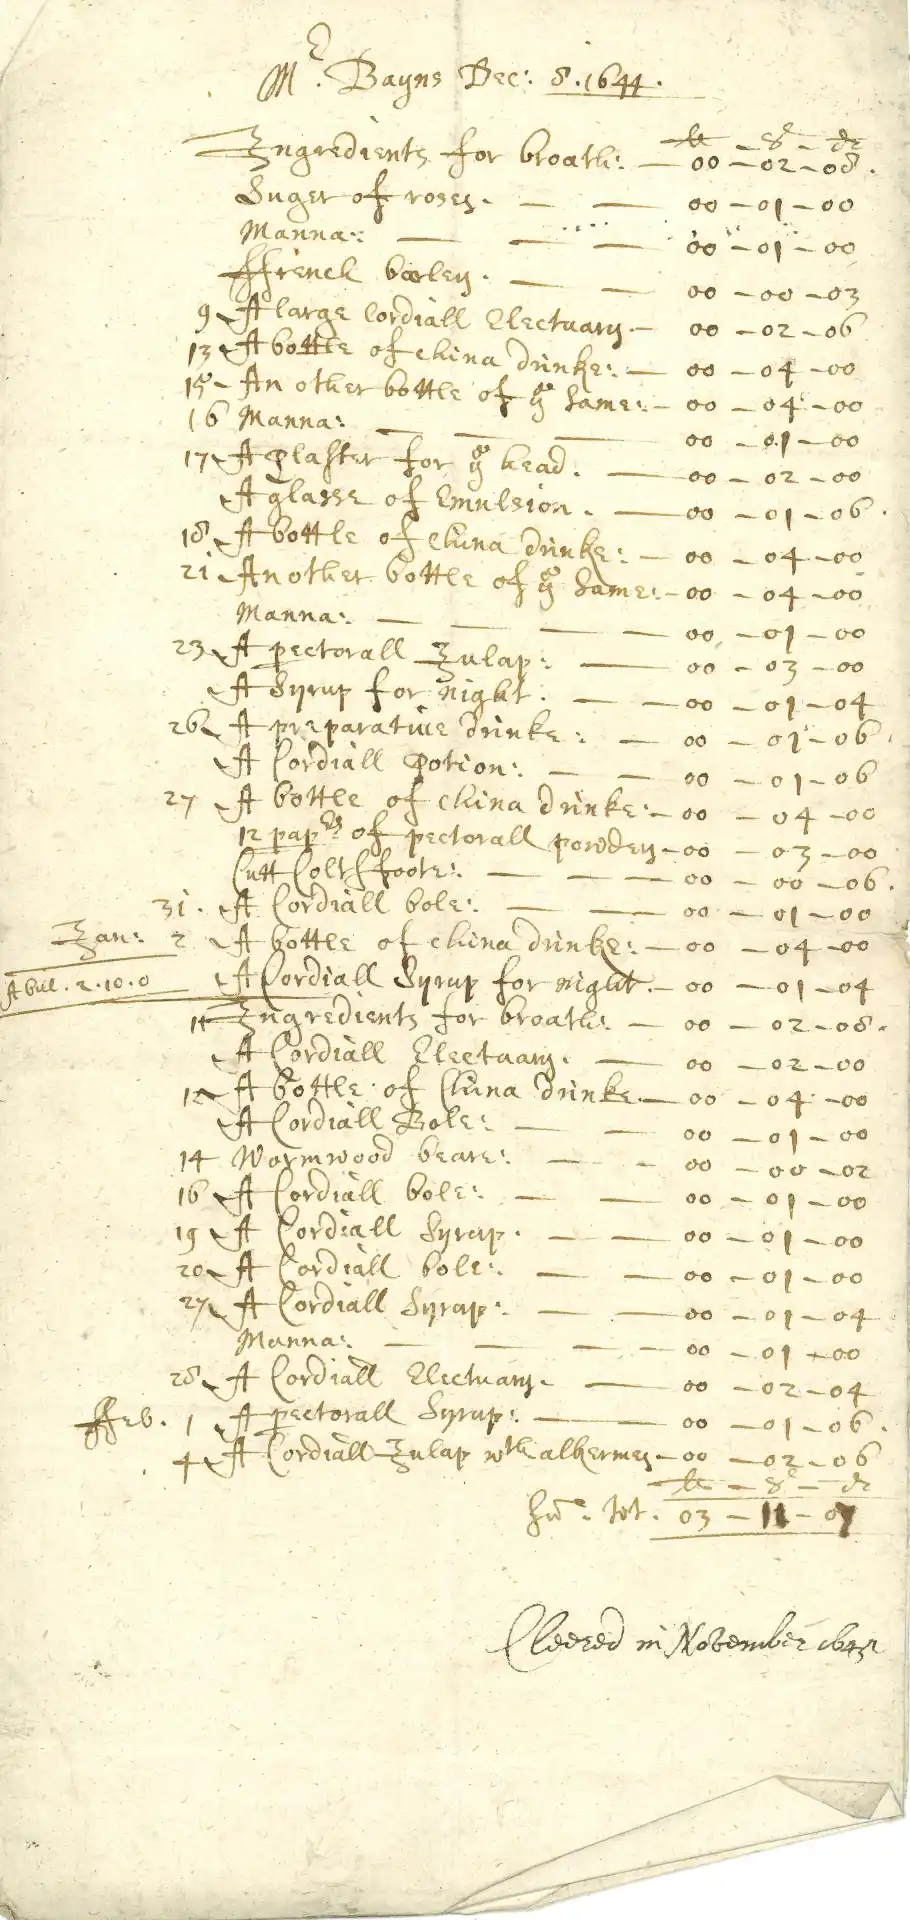 Mr. Bayns Dec: 8. 1644.
li – s – d
Ingredients for broath: — 00 – 02 – 08.
Suger of roses. — — 00 – 01 – 00
Manna: — — — 00 – 01 – 00
ffrench barley. — — 00 – 00 – 03
9 A large Cordiall Electuary — 00 – 02 – 06
13 A bottle of china drinke: — 00 – 04 – 00
15 An other bottle of ye same: – 00 – 04 – 00
16 Manna: — — — 00 – 01 – 00
17 A Plaster for ye head. — 00 – 02 – 00
A glasse of Emulsion. — 00 – 01 – 06.
18 A bottle of China drinke: — 00 – 04 – 00
21 Another bottle of ye same: – 00 – 04 – 00
Manna: — — — — 00 – 01 – 00
23 A pectorall Julap: — 00 – 03 – 00
A Syrup for night. — — 00 – 01 – 04
26 A preparative drinke: — 00 – 01 – 06.
A Cordiall Potion: — — 00 – 01 – 06
27 A bottle of china drinke: – 00 – 04 – 00
12 papers of pectorall powder – 00 – 03 – 00
Cutt Coltsfoote: — — — 00 – 00 – 06.
31. A Cordiall bole: — — 00 – 01 – 00
Jan: 2 A bottle of china drinke: – 00 – 04 – 00
A bill. 2. 10. 0 A Cordiall Syrup for night. – 00 – 01 – 04
11 Ingredients for broath: — 00 – 02 – 08.
A Cordiall Electuary. — 00 – 02 – 00
12 A bottle of China drinke — 00 – 04 – 00
A Cordiall Bole: — — 00 – 01 – 00
14 Wormwood beare: — - 00 – 00 – 02
16 A Cordiall bole: — — 00 – 01 – 00
19 A Cordiall Syrup. — — 00 – 01 – 00
20 A Cordiall bole: — — 00 – 01 – 00
27 A Cordiall Syrap: — — 00 – 01 – 04
Manna: — — — — 00 – 01 – 00
28 A Cordiall Electuary. — 00 – 02 – 04
ffeb. 1 A pectorall Syrup: — 00 – 01 – 06.
4 A Cordiall Julap wth alkermes – 00 – 02 – 06
li – s – d
Sum. tot. 03 – 11 – 07
Cleered in November 1645